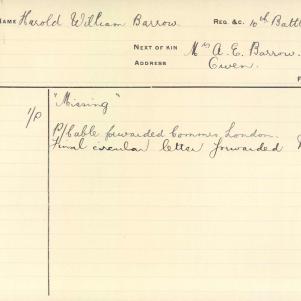 NAME Harold William Barrow REG. &C. 10th Battn
NEXT OF KIN Mrs A. E. Barrow.
ADDRESS Owen.
"Missing"
1/P
P/Cable forwarded Commrs, London.
Final circular letter forwarded